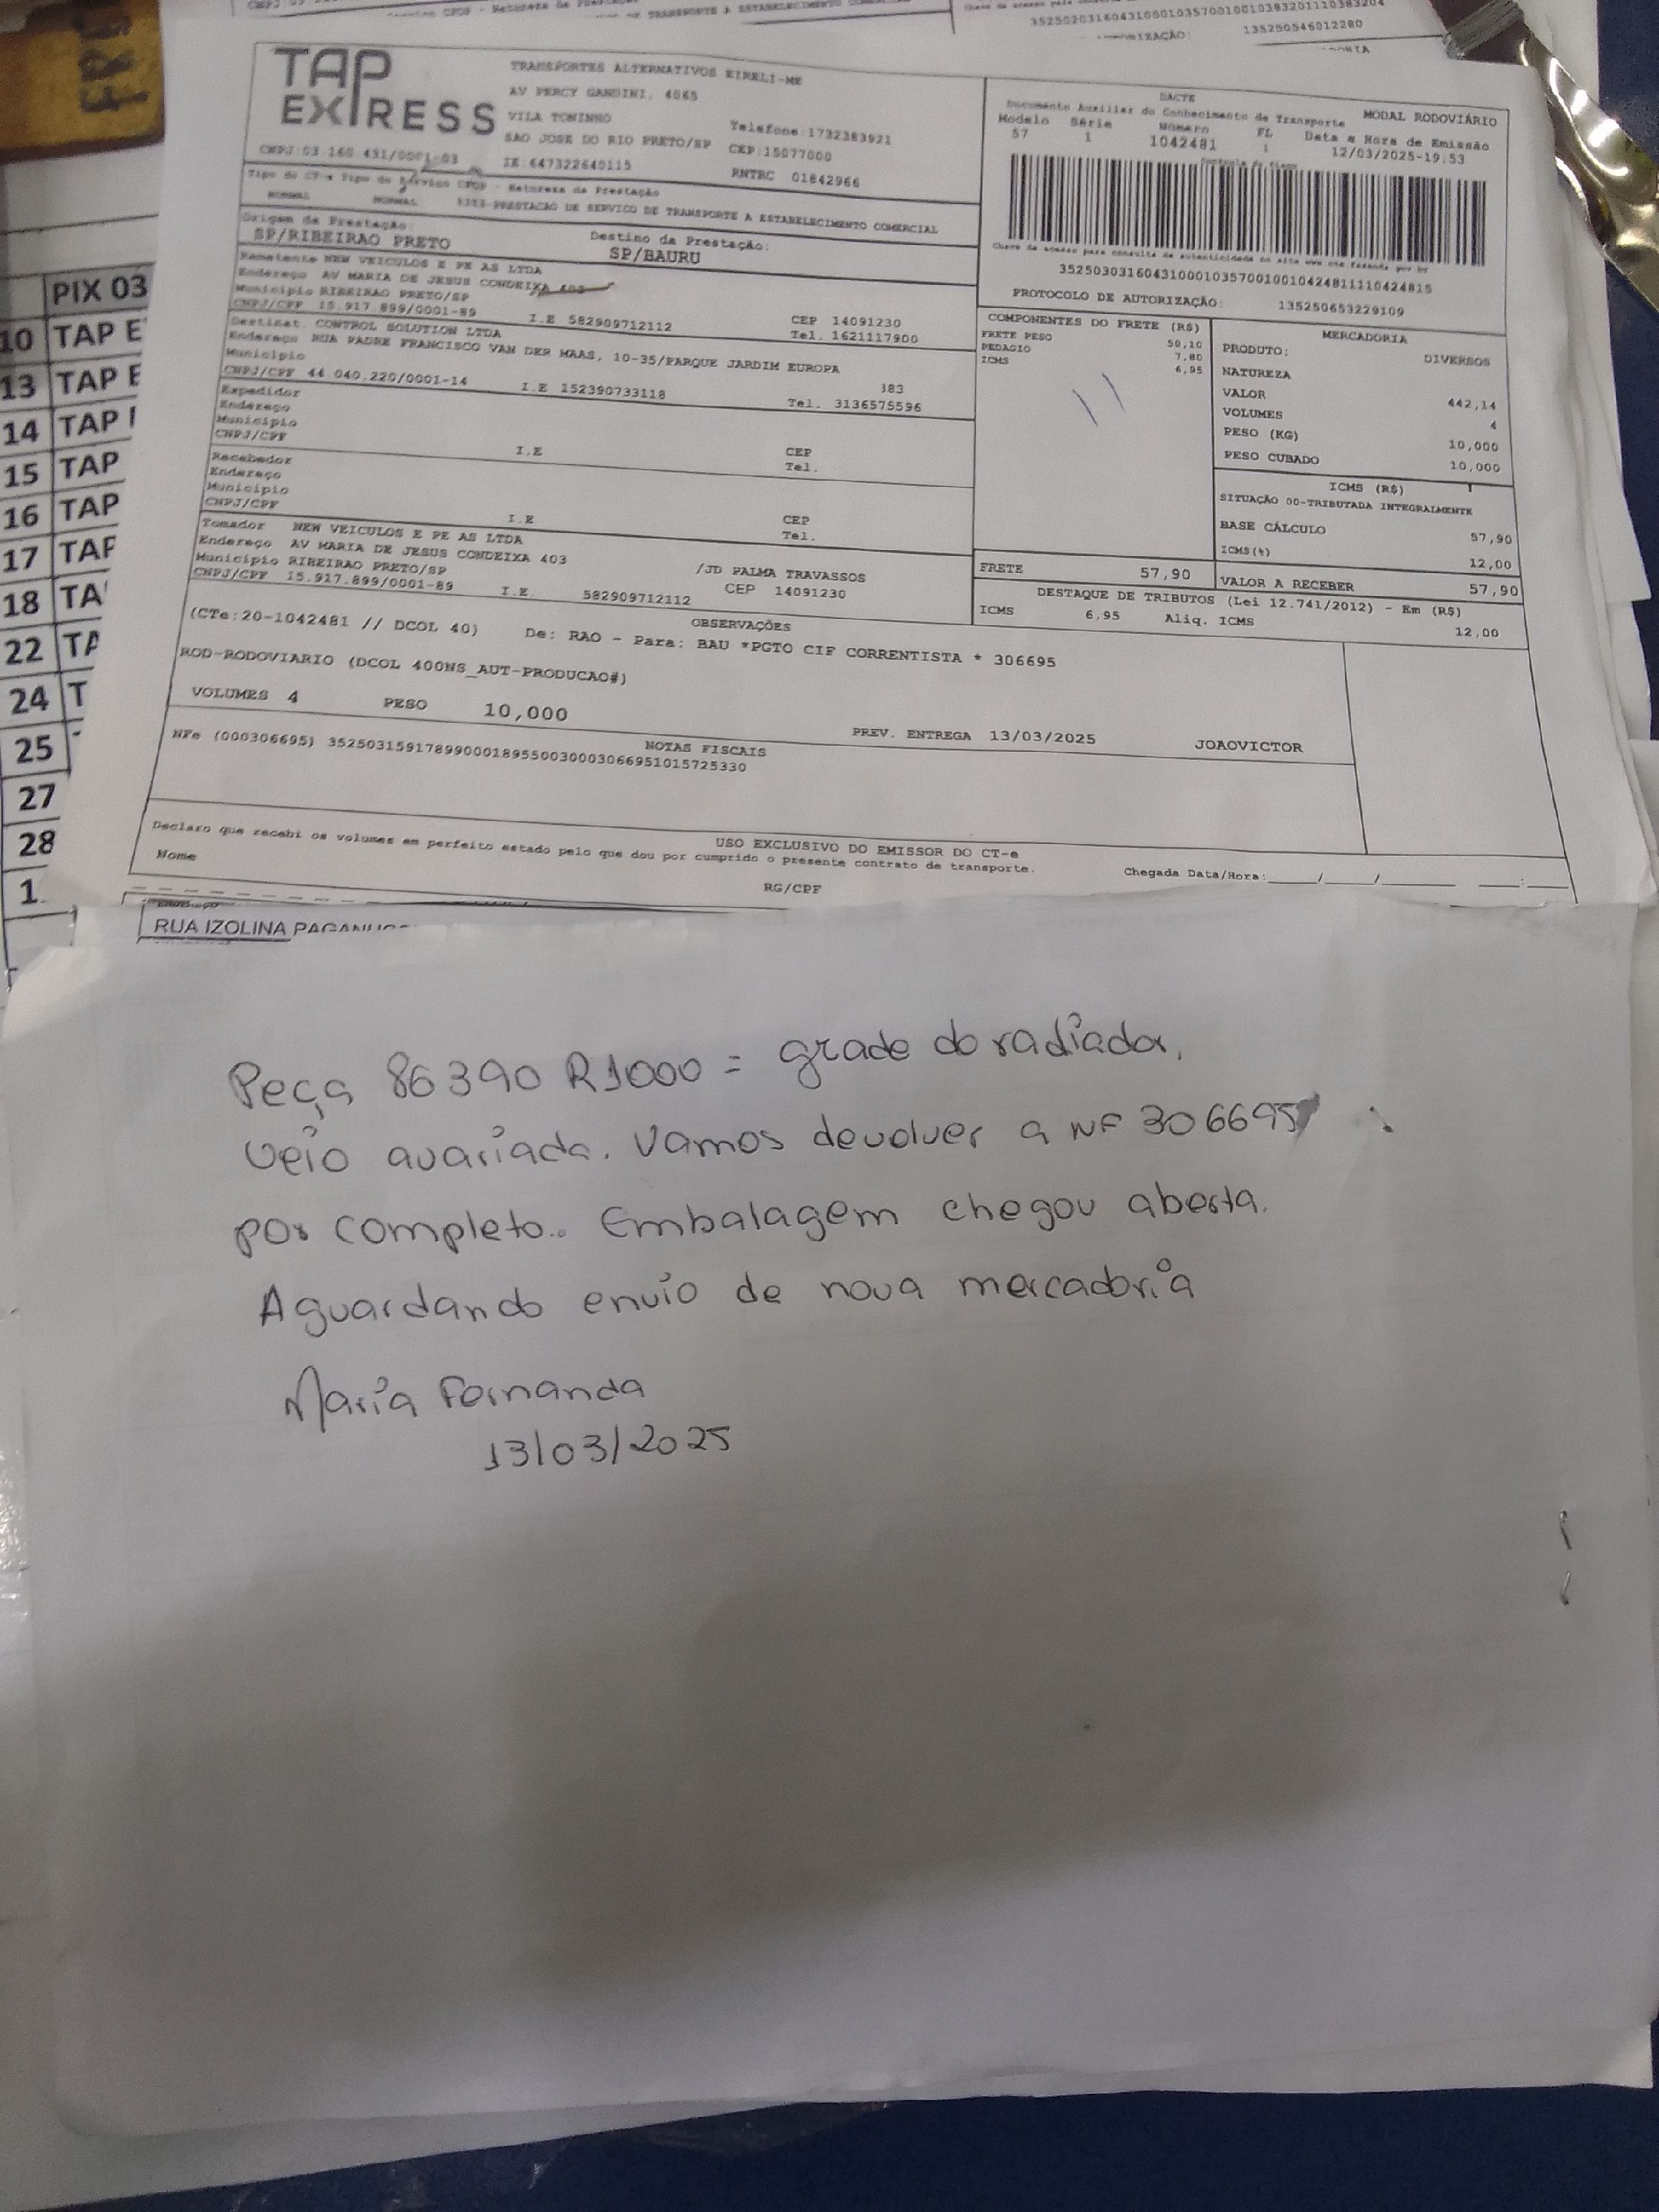 35250203160431000103570010010383201110383204
135250546012280
TAP
EXPRESS
TRANSPORTES ALTERNATIVOS EIRELI-ME
AV PERCY GANDINI, 4065
VILA TONINHO
SAO JOSE DO RIO PRETO/SP
Telefone:1732383921
CEP:15077000
CNPJ:03.160.431/0001-03
IE:647322640115
RNTRC 01842966
Tipo do CT-e Tipo do Serviço CFOP - Natureza da Prestação
NORMAL NORMAL 5353-PRESTACAO DE SERVICO DE TRANSPORTE A ESTABELECIMENTO COMERCIAL
DACTE
Documento Auxiliar do Conhecimento de Transporte
MODAL RODOVIÁRIO
Modelo Série Número FL Data e Hora de Emissão
57 1 1042481 1 12/03/2025-19:53
Chave de acesso para consulta de autenticidade no site www.cte.fazenda.gov.br
35250303160431000103570010010424811110424815
PROTOCOLO DE AUTORIZAÇÃO: 135250653229109
Origem da Prestação:
SP/RIBEIRAO PRETO
Destino da Prestação:
SP/BAURU
Remetente NEW VEICULOS E PE AS LTDA
Endereço AV MARIA DE JESUS CONDEIXA 403
Município RIBEIRAO PRETO/SP
CEP 14091230
CNPJ/CPF 15.917.899/0001-89 I.E 582909712112 Tel. 1621117900
Destinat. CONTROL SOLUTION LTDA
Endereço RUA PADRE FRANCISCO VAN DER MAAS, 10-35/PARQUE JARDIM EUROPA
Município
383
CNPJ/CPF 44.040.220/0001-14 I.E 152390733118 Tel. 3136575596
Expedidor
Endereço
Município
CEP
CNPJ/CPF I.E Tel.
Recebedor
Endereço
Município
CEP
CNPJ/CPF I.E Tel.
Tomador NEW VEICULOS E PE AS LTDA
Endereço AV MARIA DE JESUS CONDEIXA 403 /JD PALMA TRAVASSOS
Município RIBEIRAO PRETO/SP CEP 14091230
CNPJ/CPF 15.917.899/0001-89 I.E. 582909712112
COMPONENTES DO FRETE (R$)
FRETE PESO 50,10
PEDAGIO 7,80
ICMS 6,95
FRETE 57,90
MERCADORIA
PRODUTO: DIVERSOS
NATUREZA
VALOR 442,14
VOLUMES 4
PESO (KG) 10,000
PESO CUBADO 10,000
ICMS (R$)
SITUAÇÃO 00-TRIBUTADA INTEGRALMENTE
BASE CÁLCULO 57,90
ICMS(%) 12,00
VALOR A RECEBER 57,90
DESTAQUE DE TRIBUTOS (Lei 12.741/2012) - Em (R$)
ICMS 6,95 Aliq. ICMS 12,00
OBSERVAÇÕES
(CTe:20-1042481 // DCOL 40) De: RAO - Para: BAU *PGTO CIF CORRENTISTA * 306695
ROD-RODOVIARIO (DCOL 400NS_AUT-PRODUCAO#)
VOLUMES 4 PESO 10,000
PREV. ENTREGA 13/03/2025 JOAOVICTOR
NOTAS FISCAIS
NFe (000306695) 35250315917899000189550030003066951015725330
USO EXCLUSIVO DO EMISSOR DO CT-e
Declaro que recebi os volumes em perfeito estado pelo que dou por cumprido o presente contrato de transporte.
Nome RG/CPF Chegada Data/Hora:___/___/___ __:__
PIX 03
10 TAP E
13 TAP E
14 TAP
15 TAP
16 TAP
17 TAP
18 TA
22 TA
24 T
25
27
28
1
RUA IZOLINA
Peça 86390 R1000 = grade do radiador.
Veio avariada. Vamos devolver a NF 306695
por completo.. Embalagem chegou aberta.
Aguardando envio de nova mercadoria
Maria Fernanda
13/03/2025